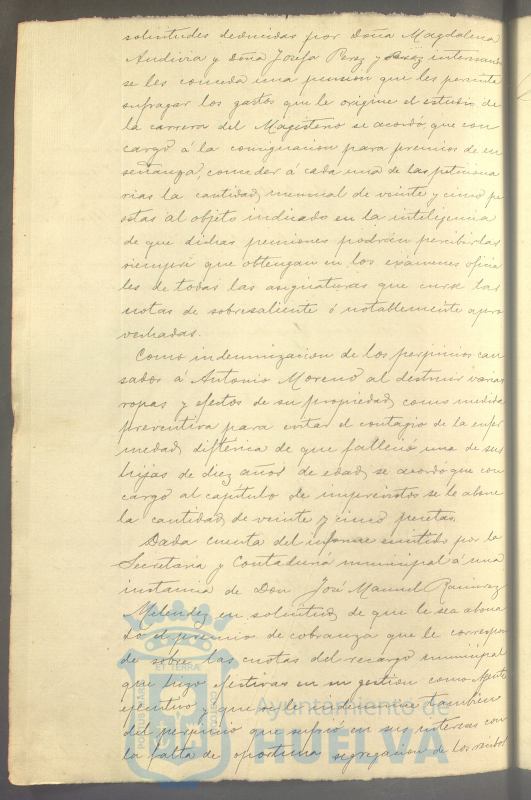 solicitudes deducidas por Doña Magdalena
Andivia y Doña Josefa Perez y Perez interesando
se les conceda una pension que les permita
sufragar los gastos que le origine el estudio de
la carrera del Magisterio se acordó que con
cargo á la consignacion para premios de en
señanza, conceder á cada una de las peticiona
rias la cantidad mensual de veinte y cinco pe
setas al objeto indicado en la inteligencia
de que dichas pensiones podrán percibirlas
siempre que obtengan en los exámenes oficia
les de todas las asignaturas que curse las
notas de sobresaliente ó notablemente apro
vechadas.
Como indemnizacion de los perjuicios cau
sados á Antonio Moreno al destruir varias
ropas y efectos de su propiedad como medida
preventiva para evitar el contagio de la enfer
medad diftérica de que falleció una de sus
hijas de diez años de edad se acordó que con
cargo al capítulo de imprevistos se le abone
la cantidad de veinte y cinco pesetas.
Dada cuenta del informe emitido por la
Secretaría y Contaduría municipal á una
instancia de Don José Manuel Ramirez
Melendez en solicitud de que le sea abona
do el premio de cobranza que le correspon
de sobre las cuotas del recargo municipal
que hizo efectivas en su gestion como Agente
ejecutivo y que se le indemnice tambien
del perjuicio que sufrió en sus intereses con
la falta de oportuna segregacion de los recibos
PORTUS MARIS ET TERRAE CUSTODIA
Ayuntamiento de
HUELVA